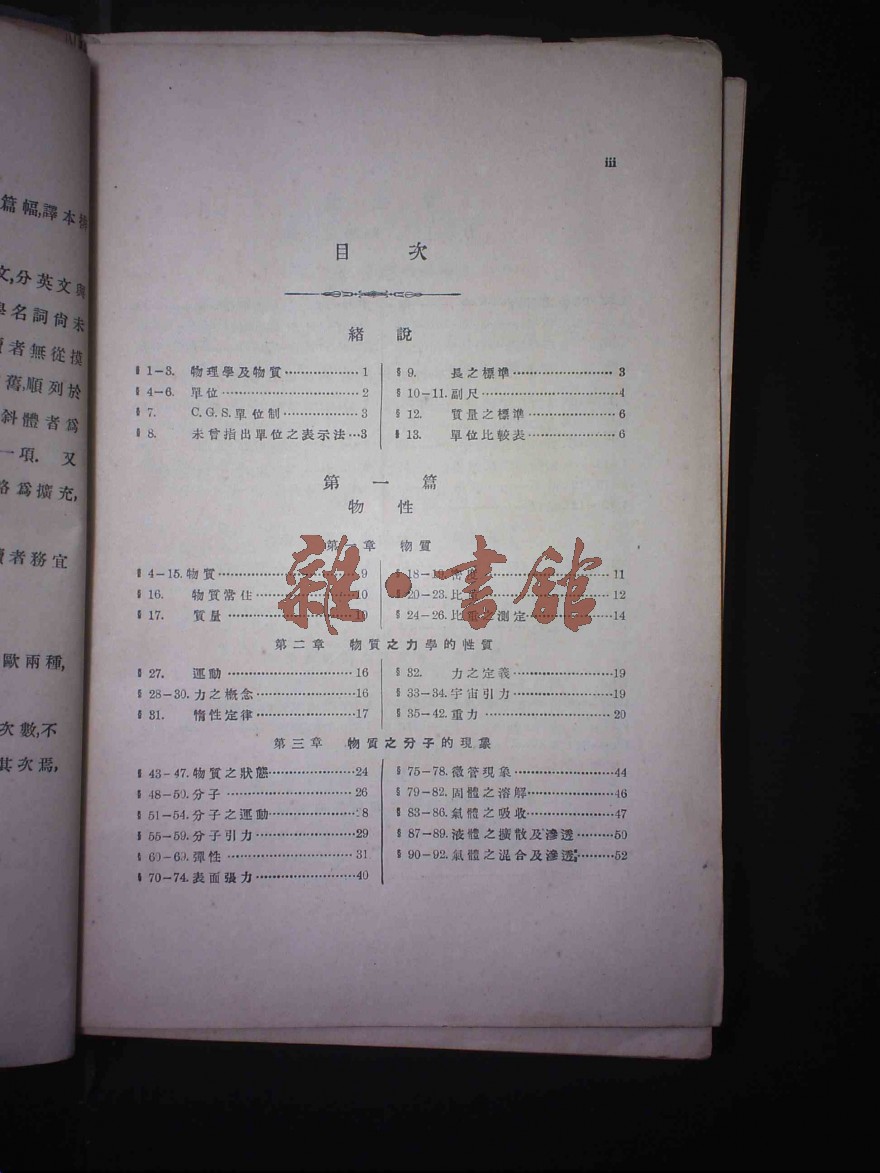 篇幅,譯本
文,分英文與
名詞尚未
者無從摸
舊,順列於
斜體者爲
一項. 又
爲擴充,
者務宜
歐兩種,
次數,不
其次焉,
iii
目 次
緒 說
§ 1-3. 物理學及物質 1
§ 4-6. 單位 2
§ 7. C.G.S.單位制 3
§ 8. 未曾指出單位之表示法 3
§ 9. 長之標準 3
§ 10-11. 副尺 4
§ 12. 質量之標準 6
§ 13. 單位比較表 6
第 一 篇
物 性
第一章 物質
§ 4-15. 物質 9
§ 16. 物質常住 10
§ 17. 質量 10
§ 18-19. 密度 11
§ 20-23. 比重 12
§ 24-26. 比重之測定 14
第二章 物質之力學的性質
§ 27. 運動 16
§ 28-30. 力之概念 16
§ 31. 惰性定律 17
§ 32. 力之定義 19
§ 33-34. 宇宙引力 19
§ 35-42. 重力 20
第三章 物質之分子的現象
§ 43-47. 物質之狀態 24
§ 48-50. 分子 26
§ 51-54. 分子之運動 28
§ 55-59. 分子引力 29
§ 60-69. 彈性 31
§ 70-74. 表面張力 40
§ 75-78. 微管現象 44
§ 79-82. 固體之溶解 46
§ 83-86. 氣體之吸收 47
§ 87-89. 液體之擴散及滲透 50
§ 90-92. 氣體之混合及滲透 52
雜·書館